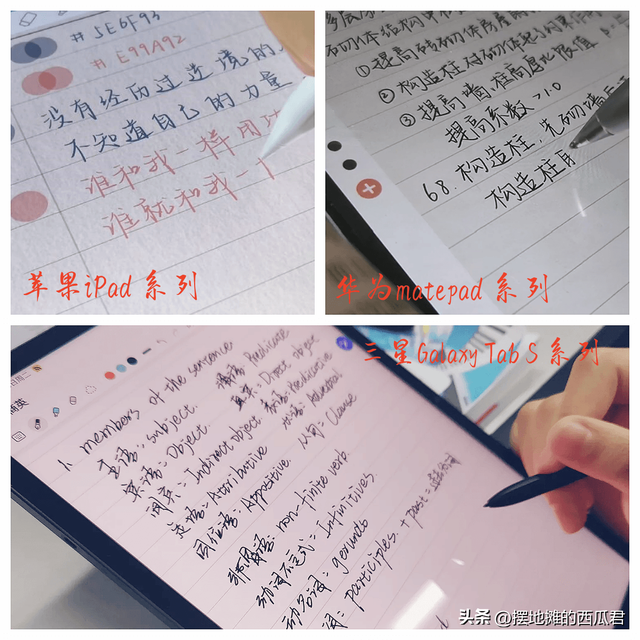 #5E6F93
#E99A92
没有经历过逆境的人
不知道自己的力量
谁和我一样用功
谁就和我一
苹果iPad 系列
①提高砖砌体房屋
②构造柱对砌体起
③提高墙、柱高厚比限值
提高系数>1.0
68.构造柱,先砌墙后
构造柱
华为matepad 系列
三星Galaxy Tab S 系列
1. members of the sentence
主语:subject. 谓语:Predicate
宾语:Object. 直宾:Direct object
间宾:Indirect object. 表语:Predicative
定语:Attributive 状语:Adverbial
同位语:Appositive. 从句:Clause
非谓语:non-finite verb.
动词不定式=Infinitives.
动名词:gerunds
词:participles. + past=
头条 @摆地摊的西瓜君